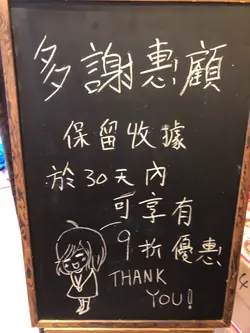 多謝惠顧
保留收據
於30天內
可享有
9折優惠
THANK
YOU!